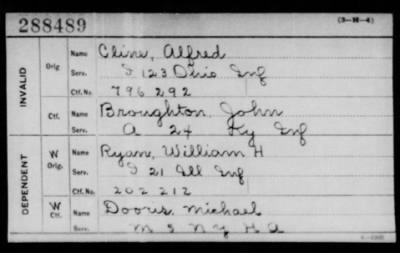 288489 (3-M-4)
INVALID Orig Name Cline, Alfred
Serv. I 123 Ohio Inf
Ctf. No. 796292
Ctf. Name Broughton, John
Serv. A 24 Ky Inf
DEPENDENT W Orig. Name Ryan, William H
Serv. I 21 Ill Inf
Ctf. No. 202212
W Ctf. Name Doors, Michael
Serv. M 5 N Y H A